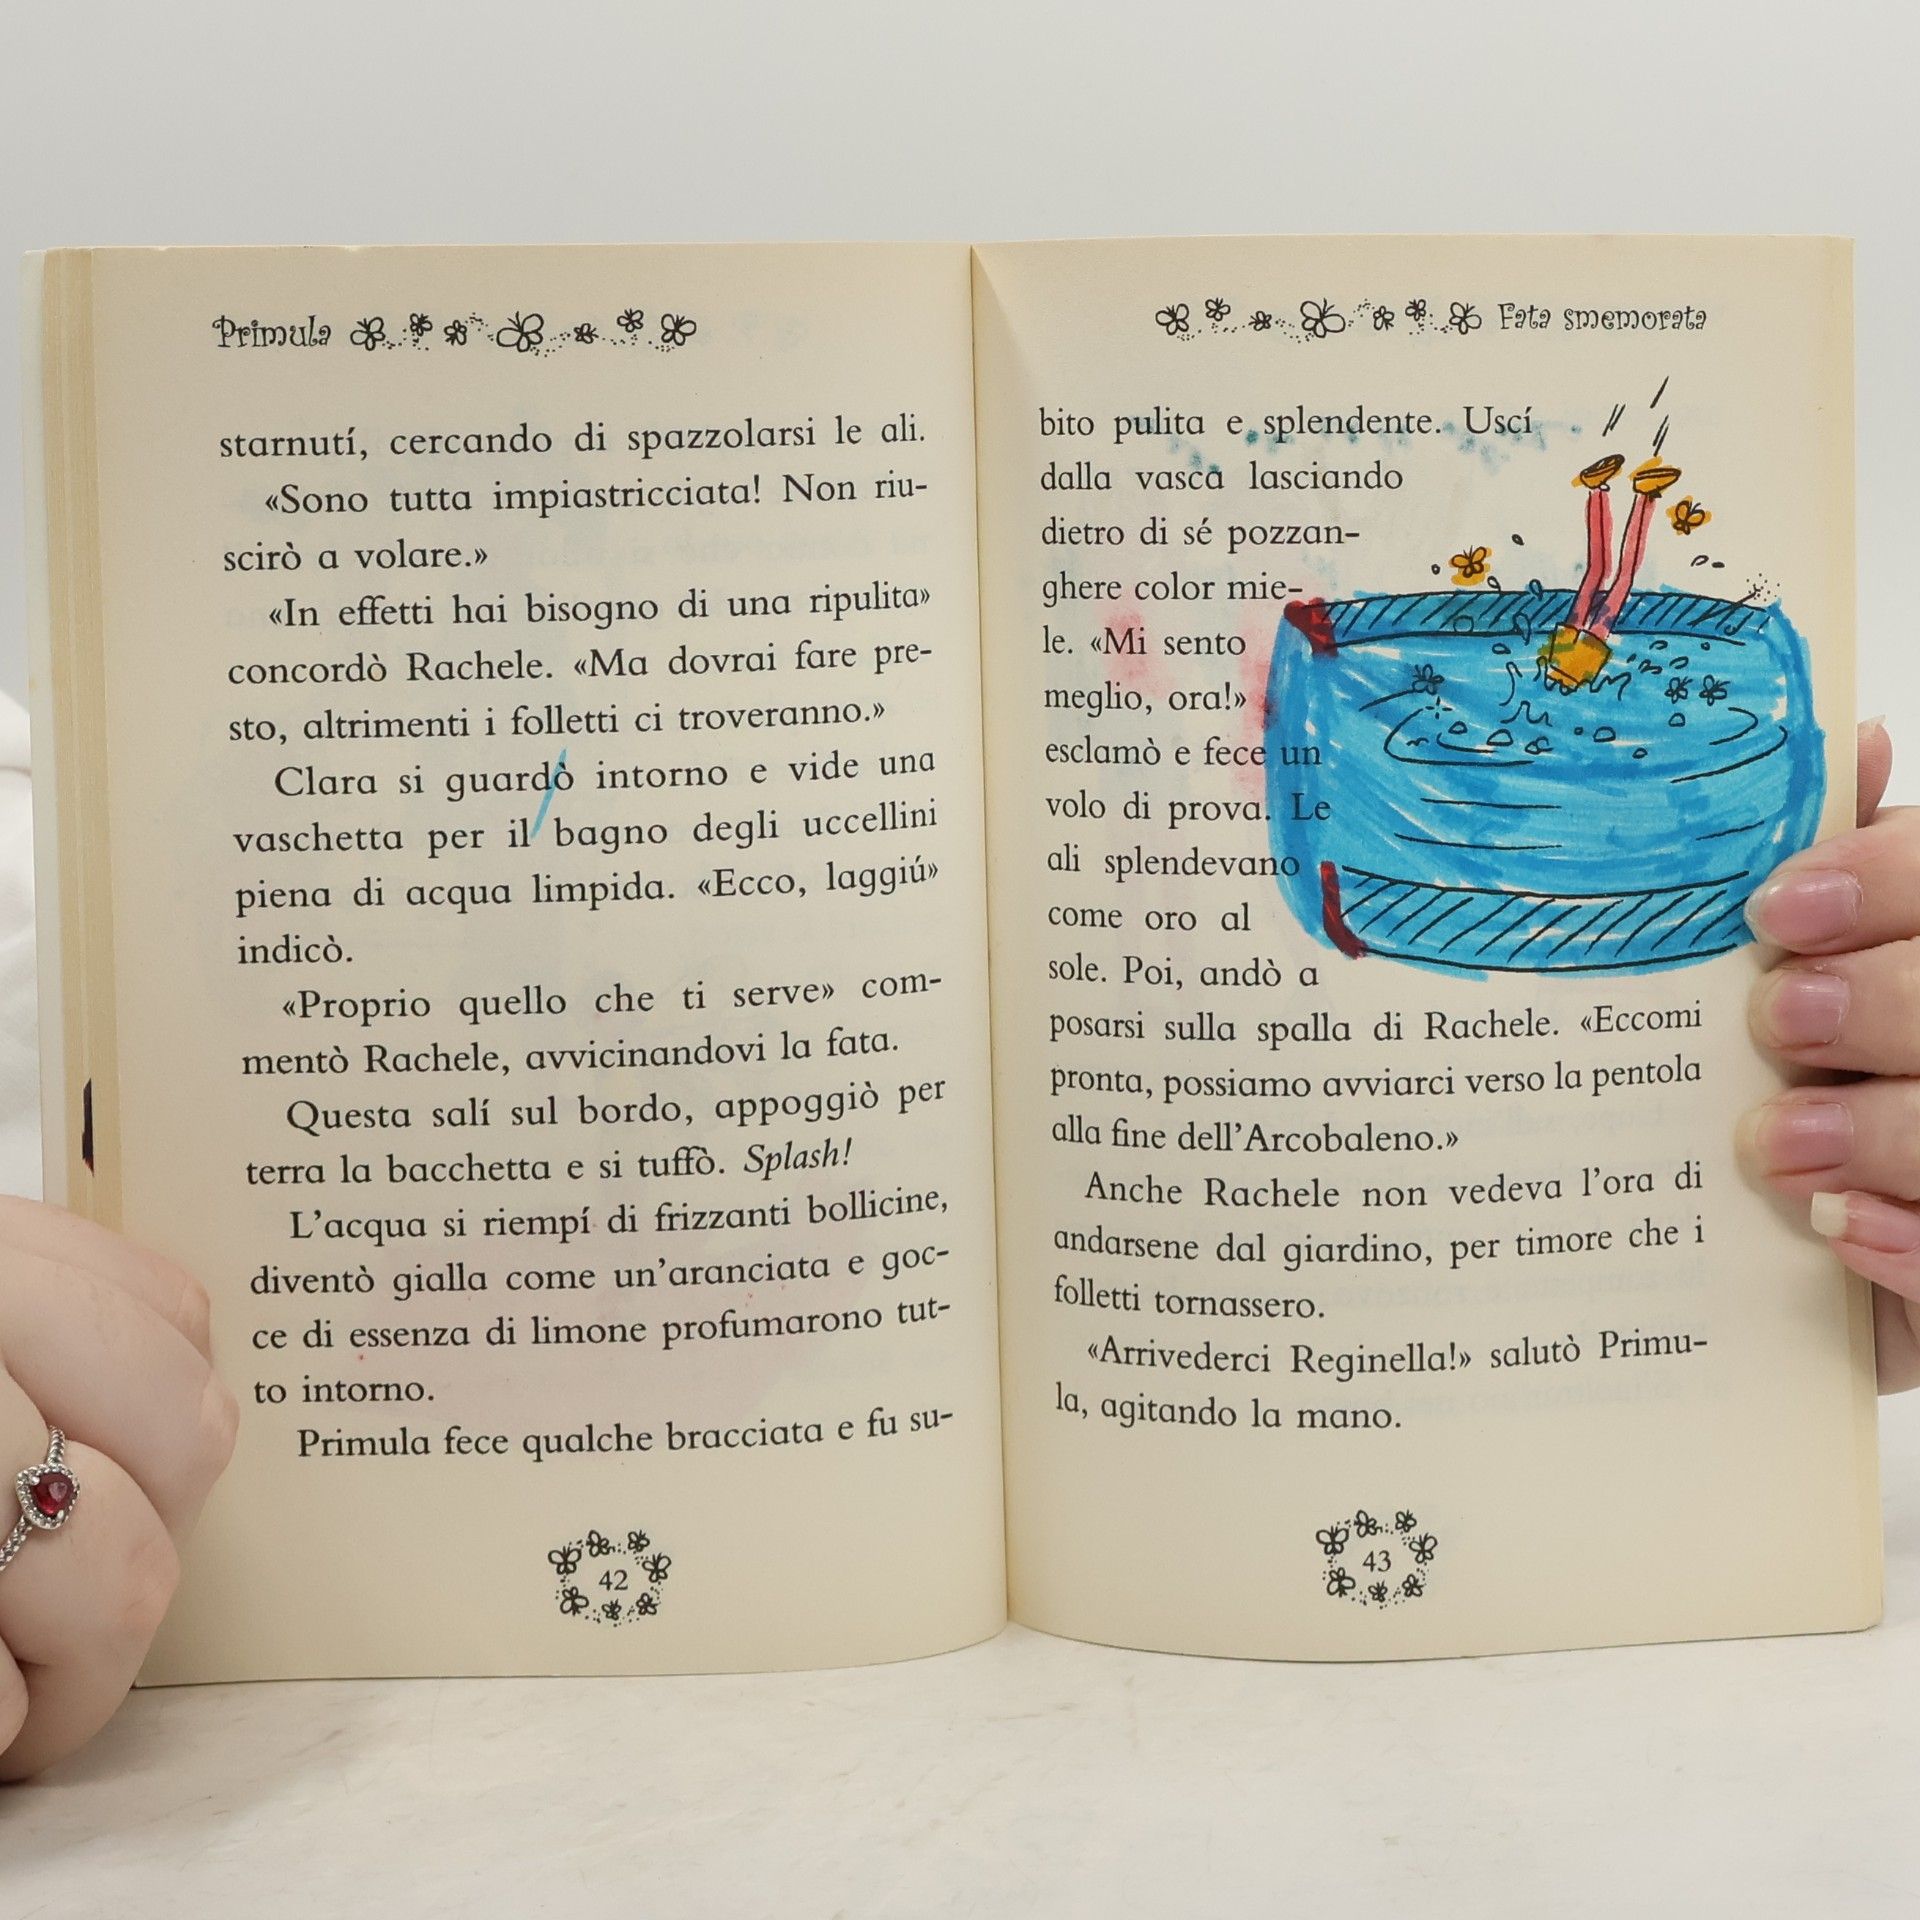 Primula
starnutí, cercando di spazzolarsi le ali.
«Sono tutta impiastricciata! Non riu-
scirò a volare.»
«In effetti hai bisogno di una ripulita»
concordò Rachele. «Ma dovrai fare pre-
sto, altrimenti i folletti ci troveranno.»
Clara si guardò intorno e vide una
vaschetta per il bagno degli uccellini
piena di acqua limpida. «Ecco, laggiú»
indicò.
«Proprio quello che ti serve» com-
mentò Rachele, avvicinandovi la fata.
Questa salí sul bordo, appoggiò per
terra la bacchetta e si tuffò. Splash!
L'acqua si riempí di frizzanti bollicine,
diventò gialla come un'aranciata e goc-
ce di essenza di limone profumarono tut-
to intorno.
Primula fece qualche bracciata e fu su-
42
Fata smemorata
bito pulita e splendente. Uscí
dalla vasca lasciando
dietro di sé pozzan-
ghere color mie-
le. «Mi sento
meglio, ora!»
esclamò e fece un
volo di prova. Le
ali splendevano
come oro al
sole. Poi, andò a
posarsi sulla spalla di Rachele. «Eccomi
pronta, possiamo avviarci verso la pentola
alla fine dell'Arcobaleno.»
Anche Rachele non vedeva l'ora di
andarsene dal giardino, per timore che i
folletti tornassero.
«Arrivederci Reginella!» salutò Primu-
la, agitando la mano.
43